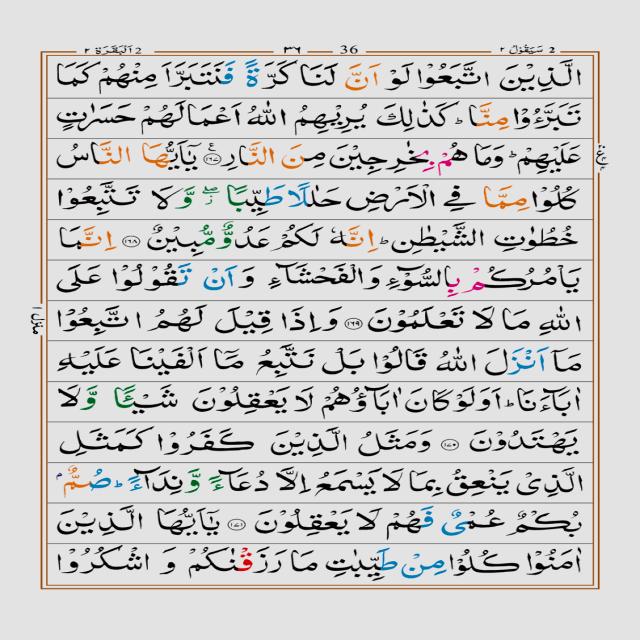 2 سَيَقُوْلُ ٢ 36 ٣٦ 2 اَلْبَقَرَة ٢
الَّذِيْنَ اتَّبَعُوْا لَوْ اَنَّ لَنَا كَرَّةً فَنَتَبَرَّاَ مِنْهُمْ كَمَا
تَبَرَّءُوْا مِنَّا ؕ كَذٰلِكَ يُرِيْهِمُ اللّٰهُ اَعْمَالَهُمْ حَسَرٰتٍ
عَلَيْهِمْ ؕ وَمَا هُمْ بِخٰرِجِيْنَ مِنَ النَّارِ ﴿۱۶۷﴾ يٰۤاَيُّهَا النَّاسُ
كُلُوْا مِمَّا فِي الْاَرْضِ حَلٰلًا طَيِّبًا ۖؗ وَّ لَا تَتَّبِعُوْا
خُطُوٰتِ الشَّيْطٰنِ ؕ اِنَّهٗ لَكُمْ عَدُوٌّ مُّبِيْنٌ ﴿۱۶۸﴾ اِنَّمَا
يَاْمُرُكُمْ بِالسُّوْٓءِ وَالْفَحْشَآءِ وَاَنْ تَقُوْلُوْا عَلَى
اللّٰهِ مَا لَا تَعْلَمُوْنَ ﴿۱۶۹﴾ وَاِذَا قِيْلَ لَهُمُ اتَّبِعُوْا
مَاۤ اَنْزَلَ اللّٰهُ قَالُوْا بَلْ نَتَّبِعُ مَاۤ اَلْفَيْنَا عَلَيْهِ
اٰبَآءَنَا ؕ اَوَلَوْ كَانَ اٰبَآؤُهُمْ لَا يَعْقِلُوْنَ شَيْـًٔا وَّلَا
يَهْتَدُوْنَ ﴿۱۷۰﴾ وَمَثَلُ الَّذِيْنَ كَفَرُوْا كَمَثَلِ
الَّذِيْ يَنْعِقُ بِمَا لَا يَسْمَعُ اِلَّا دُعَآءً وَّنِدَآءً ؕ صُمٌّۢ
بُكْمٌ عُمْيٌ فَهُمْ لَا يَعْقِلُوْنَ ﴿۱۷۱﴾ يٰۤاَيُّهَا الَّذِيْنَ
اٰمَنُوْا كُلُوْا مِنْ طَيِّبٰتِ مَا رَزَقْنٰكُمْ وَ اشْكُرُوْا
منزل ١